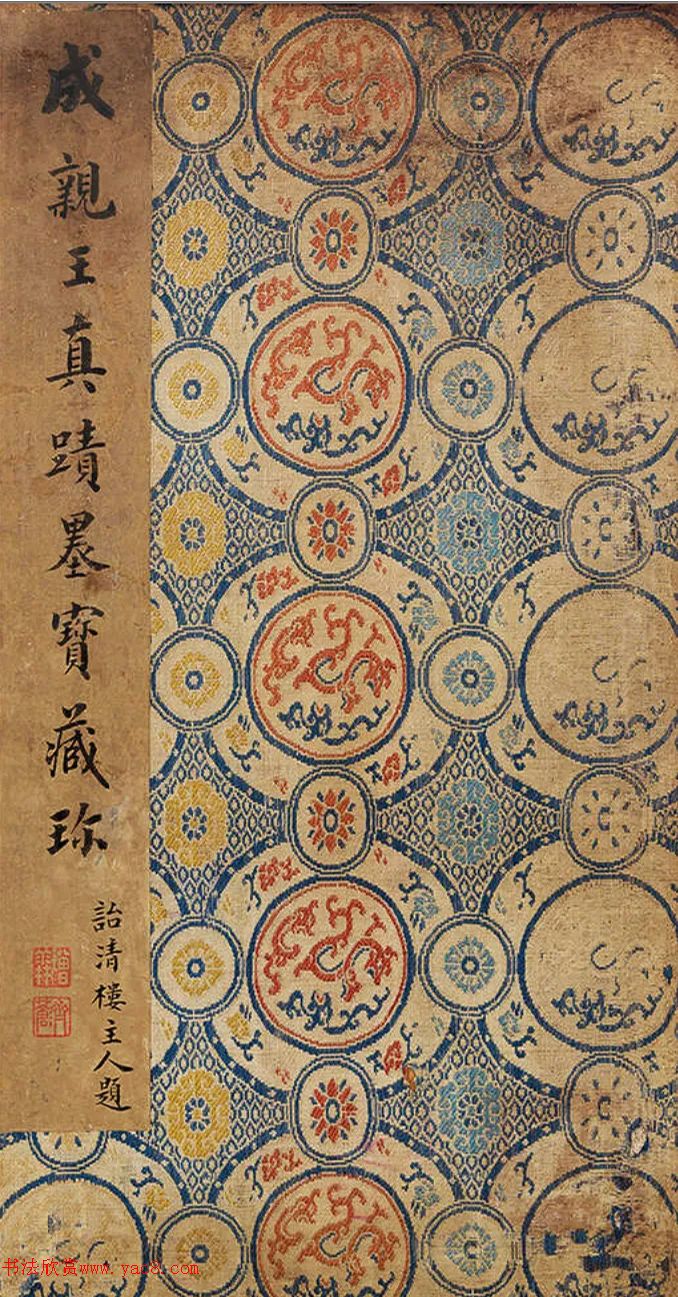 成親王真蹟墨寶藏珎
詒清樓主人題
书法欣赏www.yac8.com